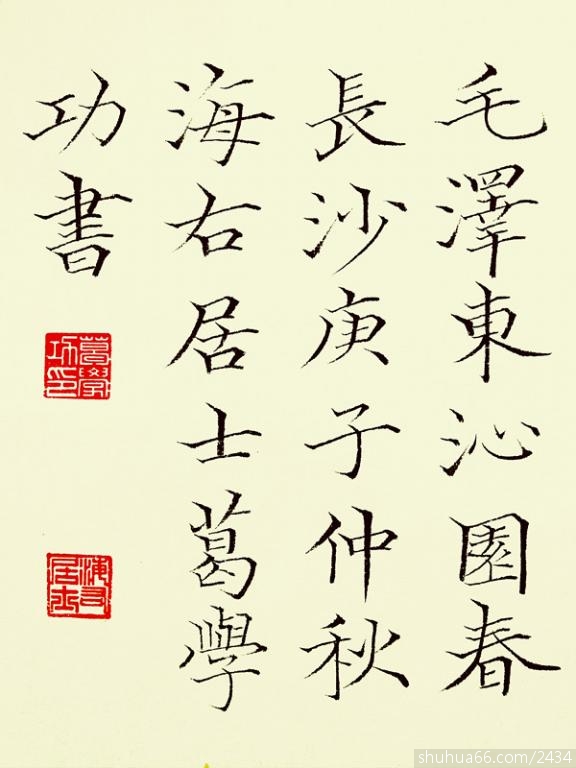 毛澤東沁園春
長沙庚子仲秋
海右居士葛學
功書
葛學功印
海右居士
shuhua66.com/2434